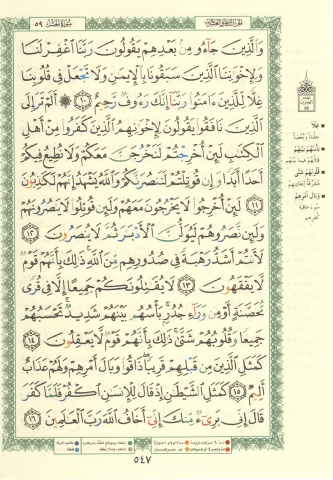 الجزء الثامن والعشرون
سورة الحشر ٥٩
وَالَّذِينَ جَآءُو مِنۢ بَعْدِهِمْ يَقُولُونَ رَبَّنَا اغْفِرْ لَنَا
وَلِإِخْوَٰنِنَا الَّذِينَ سَبَقُونَا بِالْإِيمَٰنِ وَلَا تَجْعَلْ فِى قُلُوبِنَا
غِلًّا لِّلَّذِينَ ءَامَنُوا رَبَّنَآ إِنَّكَ رَءُوفٌ رَّحِيمٌ ١٠ ۞ أَلَمْ تَرَ إِلَى
الَّذِينَ نَافَقُوا يَقُولُونَ لِإِخْوَٰنِهِمُ الَّذِينَ كَفَرُوا مِنْ أَهْلِ
الْكِتَٰبِ لَئِنْ أُخْرِجْتُمْ لَنَخْرُجَنَّ مَعَكُمْ وَلَا نُطِيعُ فِيكُمْ
أَحَدًا أَبَدًا وَإِن قُوتِلْتُمْ لَنَنصُرَنَّكُمْ وَاللَّهُ يَشْهَدُ إِنَّهُمْ لَكَٰذِبُونَ
١١ لَئِنْ أُخْرِجُوا لَا يَخْرُجُونَ مَعَهُمْ وَلَئِن قُوتِلُوا لَا يَنصُرُونَهُمْ
وَلَئِن نَّصَرُوهُمْ لَيُوَلُّنَّ الْأَدْبَٰرَ ثُمَّ لَا يُنصَرُونَ ١٢
لَأَنتُمْ أَشَدُّ رَهْبَةً فِى صُدُورِهِم مِّنَ اللَّهِ ذَٰلِكَ بِأَنَّهُمْ قَوْمٌ
لَّا يَفْقَهُونَ ١٣ لَا يُقَٰتِلُونَكُمْ جَمِيعًا إِلَّا فِى قُرًى
مُّحَصَّنَةٍ أَوْ مِن وَرَآءِ جُدُرٍۭ بَأْسُهُم بَيْنَهُمْ شَدِيدٌ تَحْسَبُهُمْ
جَمِيعًا وَقُلُوبُهُمْ شَتَّىٰ ذَٰلِكَ بِأَنَّهُمْ قَوْمٌ لَّا يَعْقِلُونَ ١٤
كَمَثَلِ الَّذِينَ مِن قَبْلِهِمْ قَرِيبًا ذَاقُوا وَبَالَ أَمْرِهِمْ وَلَهُمْ عَذَابٌ
أَلِيمٌ ١٥ كَمَثَلِ الشَّيْطَٰنِ إِذْ قَالَ لِلْإِنسَٰنِ اكْفُرْ فَلَمَّا كَفَرَ
قَالَ إِنِّى بَرِىٓءٌ مِّنكَ إِنِّىٓ أَخَافُ اللَّهَ رَبَّ الْعَٰلَمِينَ ١٦
غِلًّا
حقدًا وبغضًا
بأسهم بينهم
قلوبهم شتى
وبال أمرهم
سوء عاقبة
كفرهم
٥٤٧